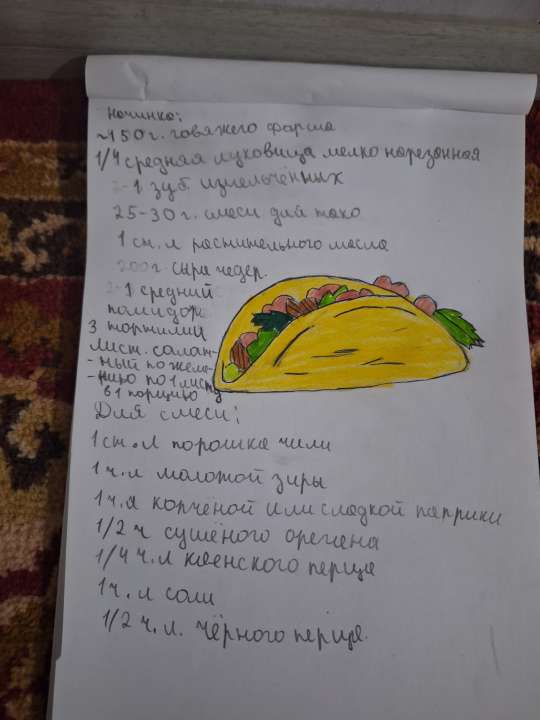 Начинка:
~150г. говяжего фарша
1/4 средняя луковица мелко нарезанная
1 зуб. измельчённых
25-30 г. смеси для тако
1 ст. л растительного масла
200г сыра чедер.
1 средний
помидор
3 тортилии
лист. салат-
- ный по жела-
- нию по 1 листу
в 1 порцию
Для смеси:
1 ст. л порошка чили
1 ч. л молотой зиры
1 ч. л копчёной или сладкой паприки
1/2 ч сушёного орегана
1/4 ч. л каенского перца
1 ч. л соли
1/2 ч. л. чёрного перца.